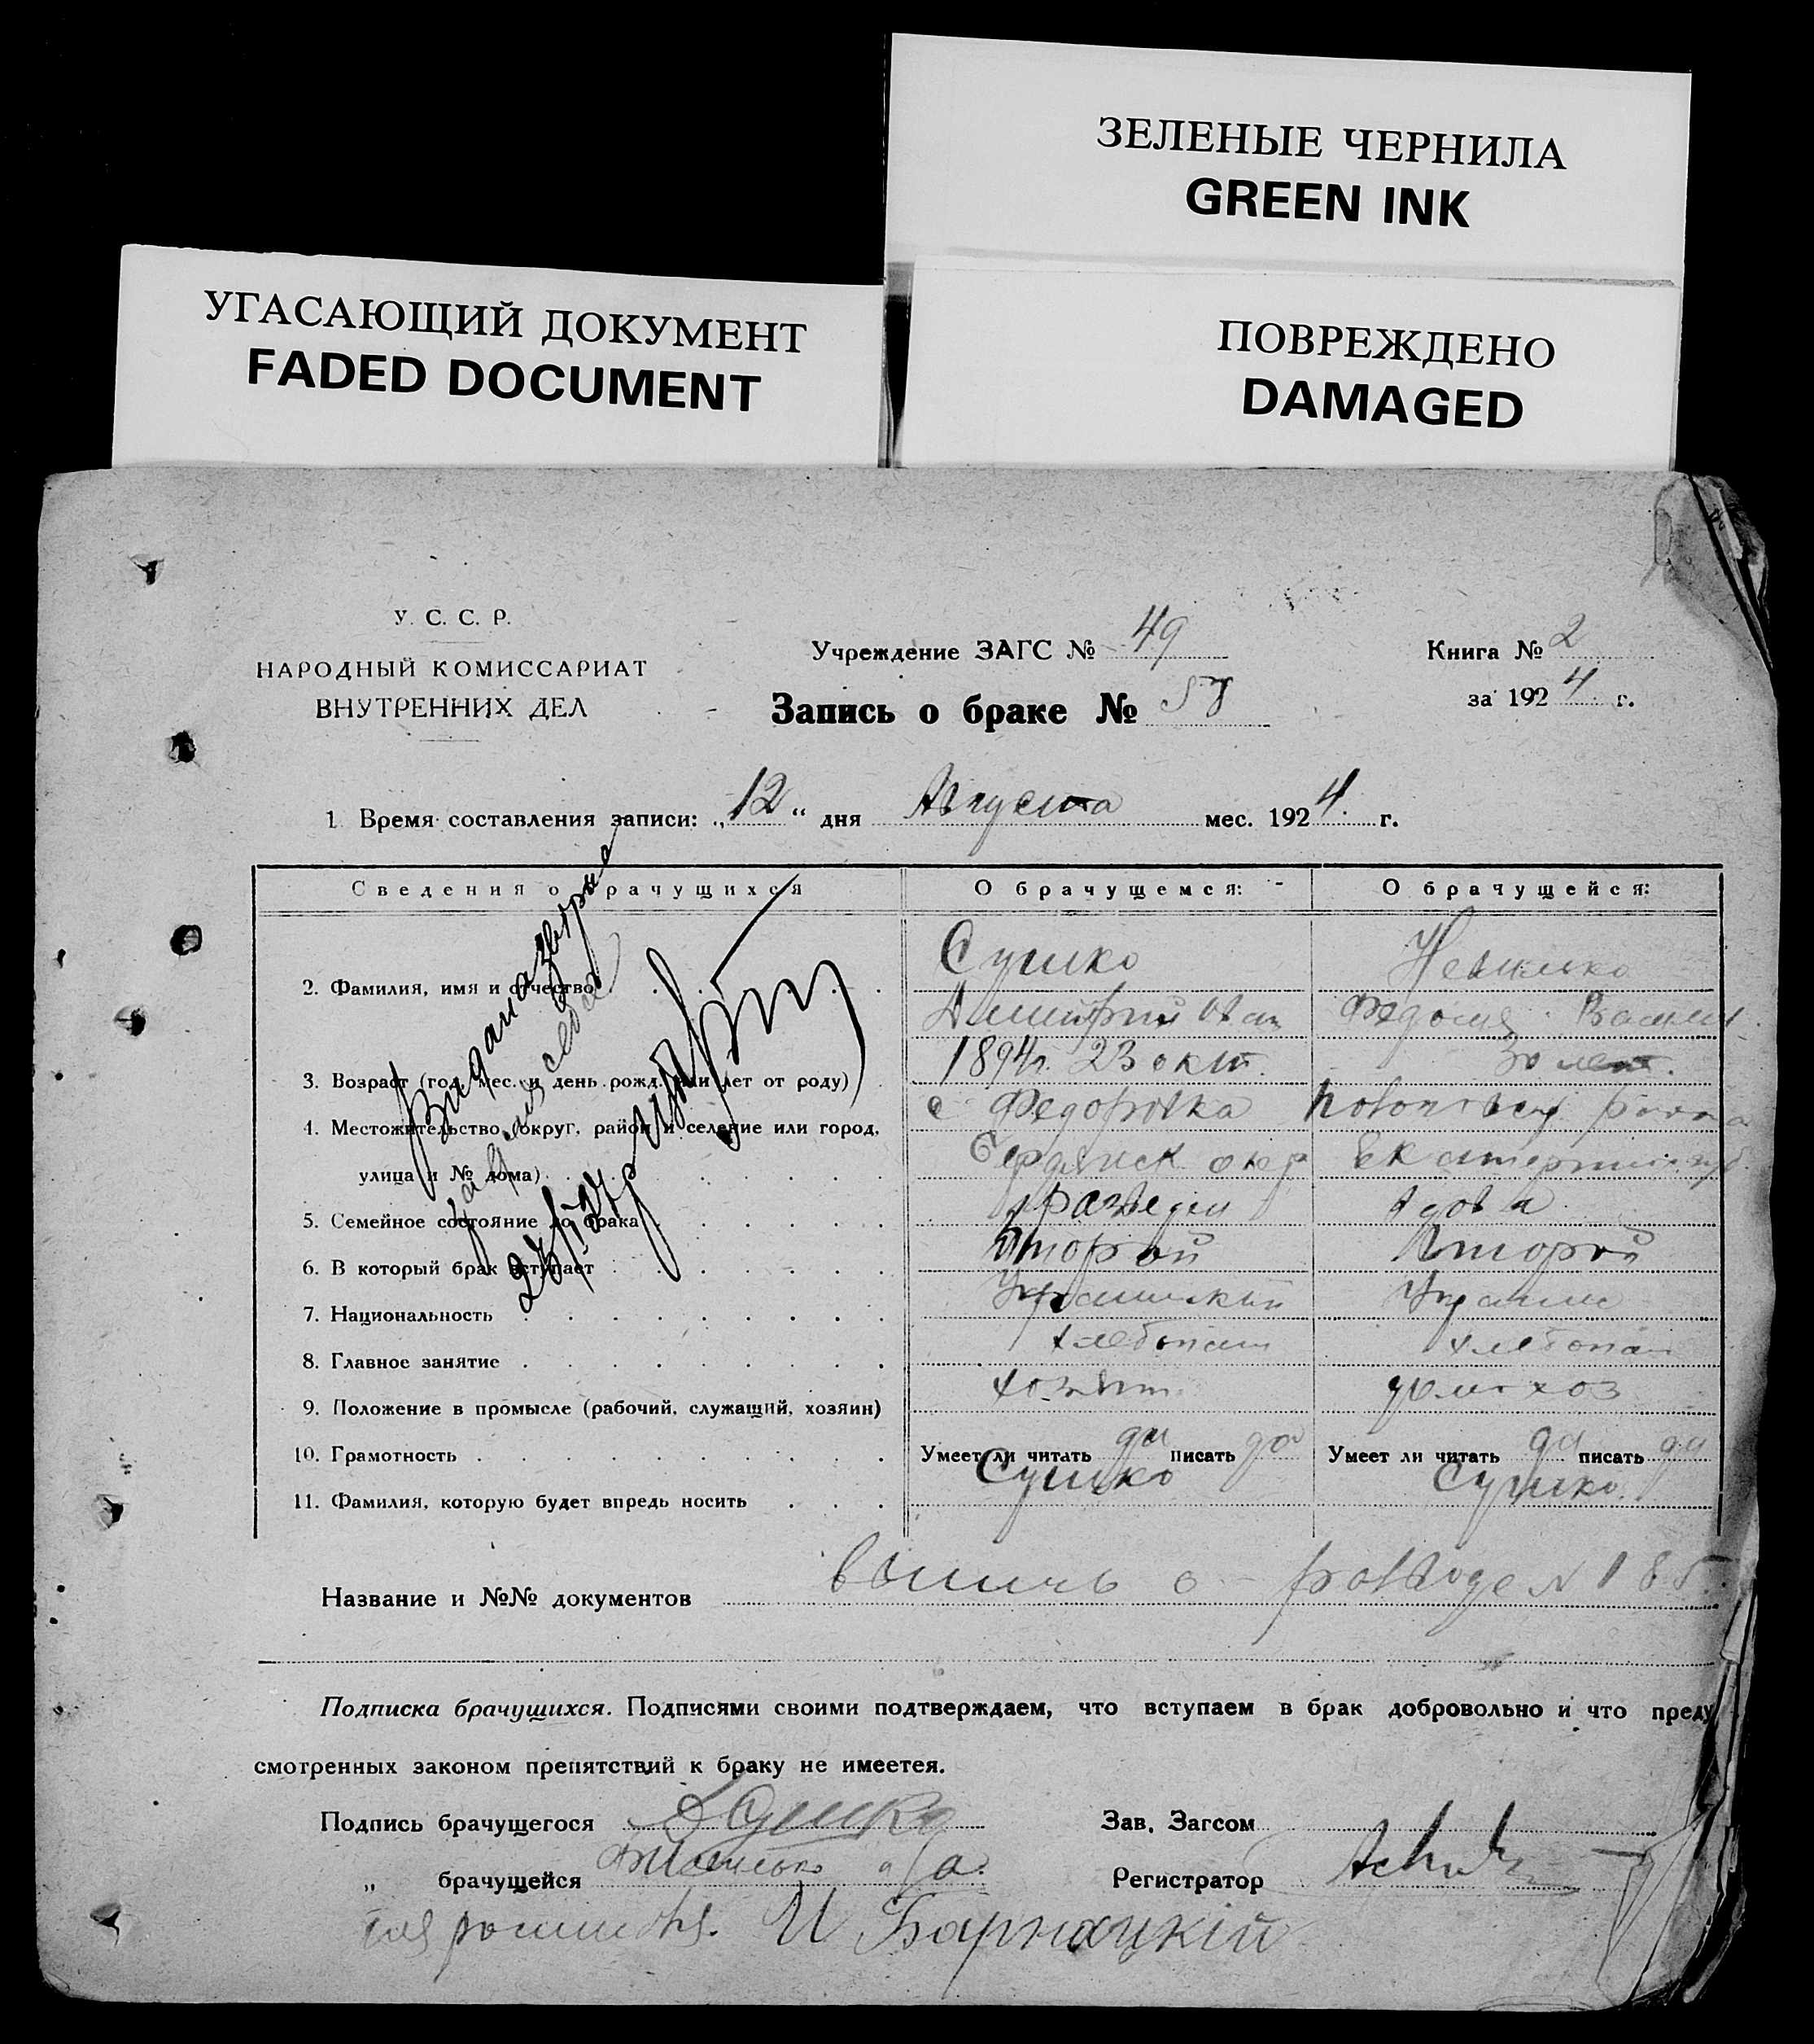 ЗЕЛЕНЫЕ ЧЕРНИЛА
GREEN INK
УГАСАЮЩИЙ ДОКУМЕНТ
FADED DOCUMENT
ПОВРЕЖДЕНО
DAMAGED
У. С. С. Р.
НАРОДНЫЙ КОМИССАРИАТ
ВНУТРЕННИХ ДЕЛ
Учреждение ЗАГС № 49
Запись о браке №
Книга № 2
за 1924 г.
1 Время составления записи: „12“ дня Августа мес. 1924 г.
Сведения о брачущихся
О брачущемся:
О брачущейся:
2. Фамилия, имя и отчество
Сушко
Дмитрий Иван
Федосия Васил
3. Возраст (год, мес. и день рожд. или лет от роду)
1894г. 23 окт.
30 лет.
4. Местожительство (округ, район и селение или город,
улица и № дома)
с Федоровка
Бердянск окр
5. Семейное состояние до брака
разведен
вдова
6. В который брак вступает
Второй
Второй
7. Национальность
8. Главное занятие
хлебопаш
хлебопаш
9. Положение в промысле (рабочий, служащий, хозяин)
домохоз
10. Грамотность
Умеет ли читать да писать да
Умеет ли читать да писать да
11. Фамилия, которую будет впредь носить
Сушко
Сушко
Название и №№ документов выпись о разводе N 185.
Подписка брачущихся. Подписями своими подтверждаем, что вступаем в брак добровольно и что преду
смотренных законом препятствий к браку не имеется.
Подпись брачущегося Сушко
Зав. Загсом
„ брачущейся
Регистратор
И Барнацкій